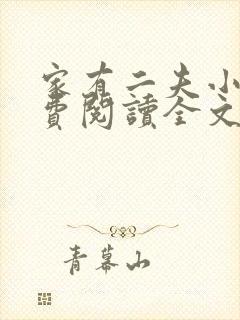 家有二夫小
費閱讀全文
青幕山